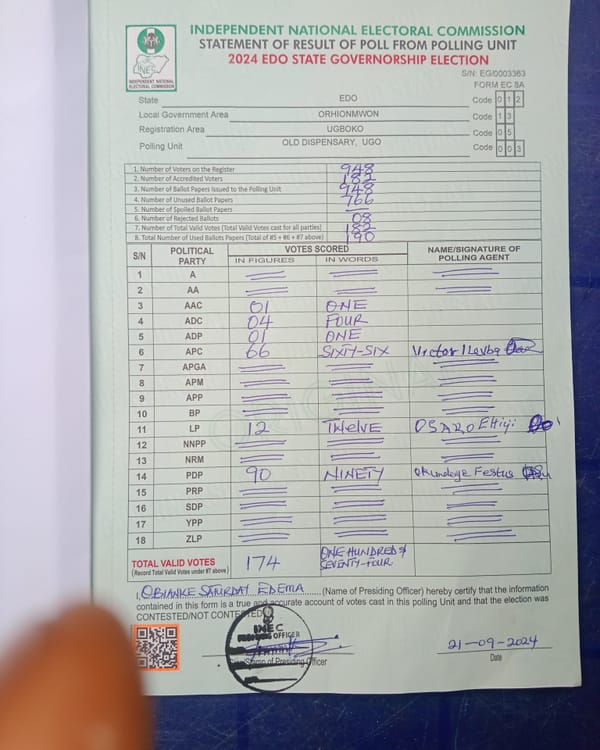 INDEPENDENT NATIONAL ELECTORAL COMMISSION
STATEMENT OF RESULT OF POLL FROM POLLING UNIT
2024 EDO STATE GOVERNORSHIP ELECTION
INEC
INDEPENDENT NATIONAL
ELECTORAL COMMISSION
S/N: EG/0003363
FORM EC 8A
State EDO Code 0 1 2
Local Government Area ORHIONMWON Code 1 3
Registration Area UGBOKO Code 0 5
Polling Unit OLD DISPENSARY, UGO Code 0 0 3
1. Number of Voters on the Register 948
2. Number of Accredited Voters 182
3. Number of Ballot Papers Issued to the Polling Unit 948
4. Number of Unused Ballot Papers 766
5. Number of Spoiled Ballot Papers —
6. Number of Rejected Ballots 08
7. Number of Total Valid Votes (Total Valid Votes cast for all parties) 182
8. Total Number of Used Ballots Papers (Total of #5 + #6 + #7 above) 190
S/N POLITICAL PARTY VOTES SCORED NAME/SIGNATURE OF POLLING AGENT
IN FIGURES IN WORDS
1 A
2 AA
3 AAC 01 ONE
4 ADC 04 FOUR
5 ADP 01 ONE
6 APC 66 SIXTY-SIX Victor Ilevba
7 APGA
8 APM
9 APP
10 BP
11 LP 12 TWELVE OSARO Ehiyi
12 NNPP
13 NRM
14 PDP 90 NINETY Okundaye Festus
15 PRP
16 SDP
17 YPP
18 ZLP
TOTAL VALID VOTES 174 ONE HUNDRED & SEVENTY-FOUR
(Record Total Valid Votes under #7 above)
I, OBIANKE SATURDAY EDEMA (Name of Presiding Officer) hereby certify that the information
contained in this form is a true and accurate account of votes cast in this polling Unit and that the election was
CONTESTED/NOT CONTESTED
INEC
PRESIDING OFFICER
Stamp of Presiding Officer
21-09-2024
Date